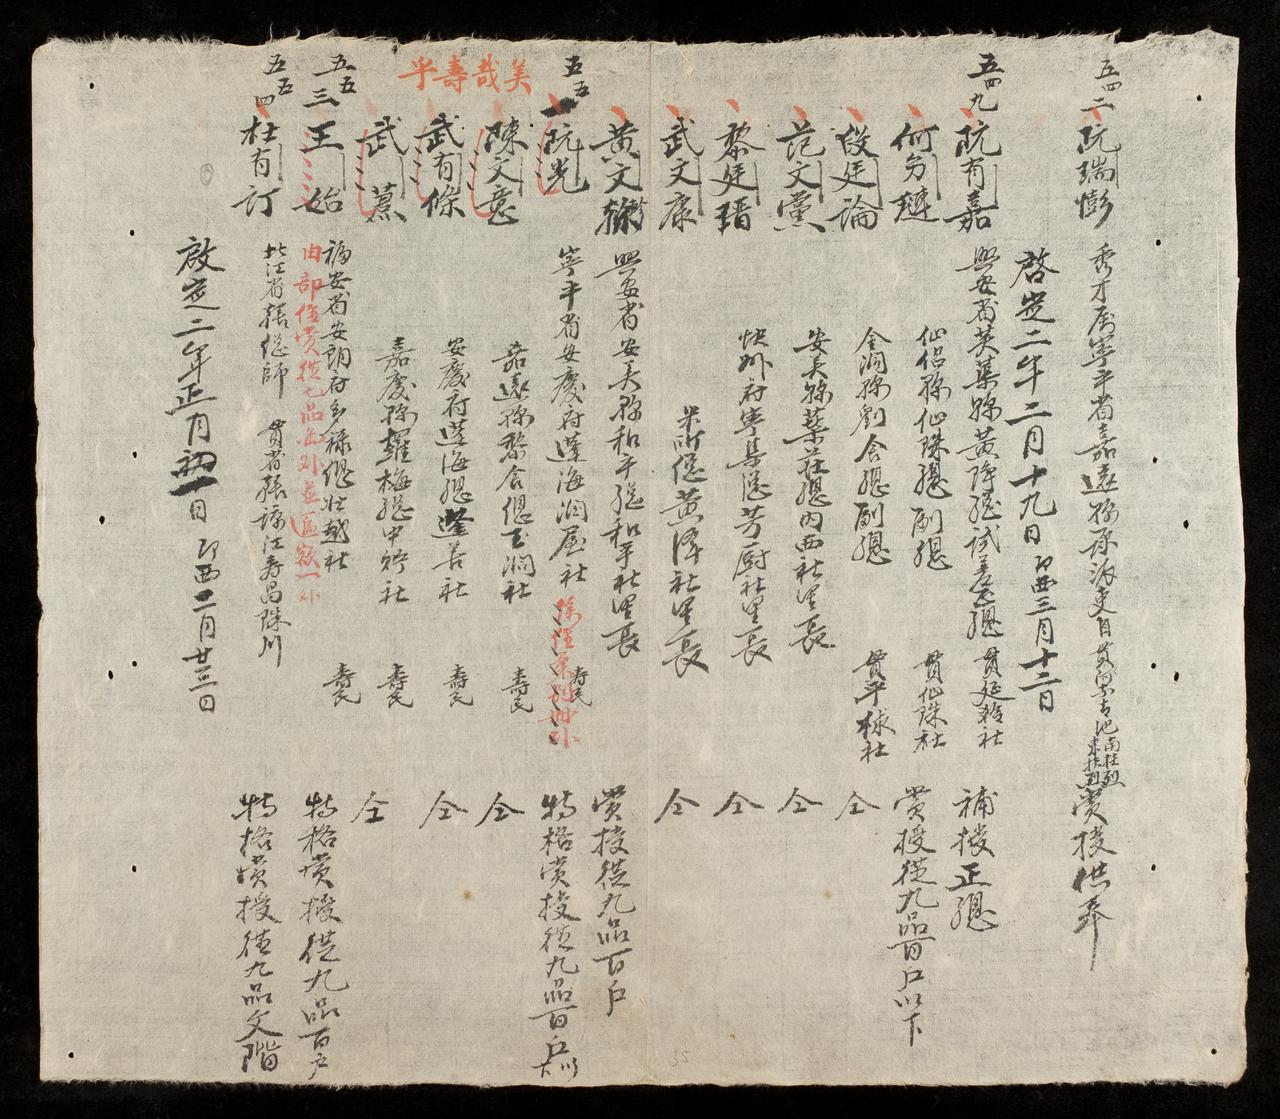 五四二 阮瑞㣉 秀才属寧平省嘉遠縣 吏目 南枉烈 賞授供奉
啓定二年二月十九日 即西三月十二日
五四九 阮有嘉 興安省芙蕖縣黃 總試差總 貫延 社 補授正總
何 璉 仙侶縣仙珠總副總 貫仙珠社 賞授從九品百户以下
段廷論 金洞縣劉舍總副總 貫平 社 仝
范文黨 安美縣 莊總內西社里長 仝
黎廷瑨 快州府寧集總芳厨社里長 仝
武文康 米所總黃澤社里長 仝
黃文 興安省安美縣和平總和平社里長 賞授從九品百户
五五 阮光 寧平省安慶府蓬海洞屋社 壽民 特格賞授從九品百户以下
陳文意 嘉遠縣黎舍總玉洞社 壽民 仝
美哉壽乎
武有條 安慶府蓬海總蓬善社 壽民 仝
武 嘉慶縣 梅總中 社 壽民 仝
五五三 王始 福安省安朗府多祿總壯越社 壽民 特格賞授從九品百户
由部 賞從七品 外並匾 一
五五四 杜有訂 北江省 總師 貫 諒江壽昌珠川 特格賞授從九品文階
啟定二年正月初一日 即西二月廿三日